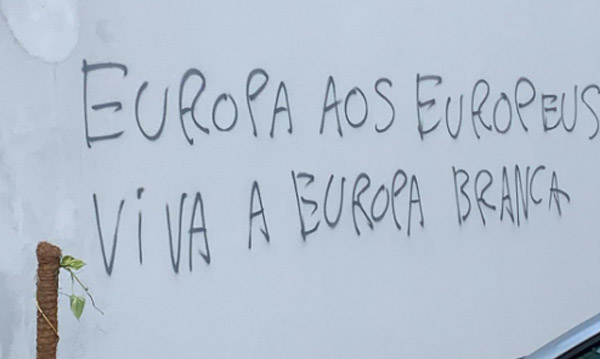 EUROPA AOS EUROPEUS
ViVA A EUROPA BRANCA